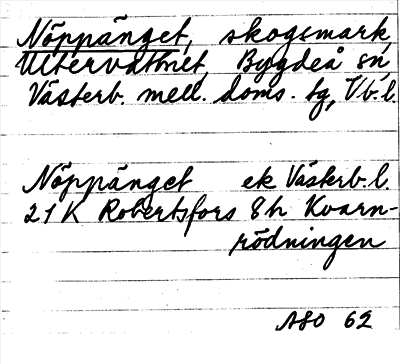 Nöppänget, skogsmark,
Ultervattnet, Bygdeå sn,
Västerb. mell. doms. tg, Vb.l.
Nöppänget ek Västerb.l.
21K Robertsfors 8h Kvarn-
rödningen
ASO 62